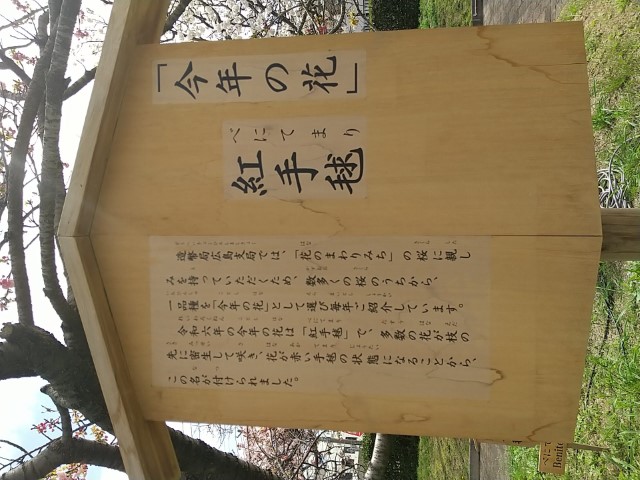 「今年の花」
べにてまり
紅手毬
造幣局広島支局では、「花のまわりみち」の桜に親し
みを持っていただくため、数多くの桜のうちから、
一品種を「今年の花」として選び毎年ご紹介しています。
令和六年の今年の花は「紅手毬」で、多数の花が枝の
先に密生して咲き、花が赤い手毬の状態になることから、
この名が付けられました。